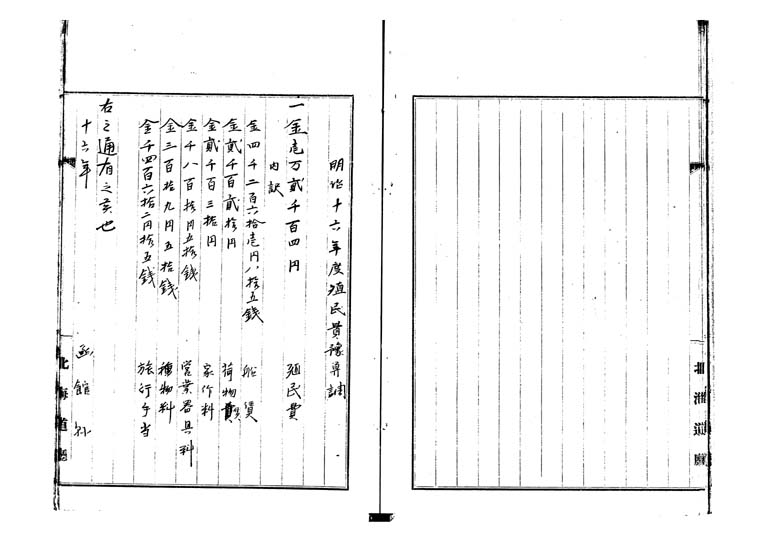 明治十六年度殖民費豫算調
一金壱万貳千百四円 殖民費
内訳
金四千二百六拾壱円八拾五銭 船賃
金貳千百貳拾円 荷物費
金貳千百三拾円 家作料
金千八百拾円五拾銭 営業器具料
金三百拾九円五拾銭 種物料
金千四百六拾二円拾五銭 旅行手当
右之通有之候也
十六年 函館縣
北海道廳
北海道廳